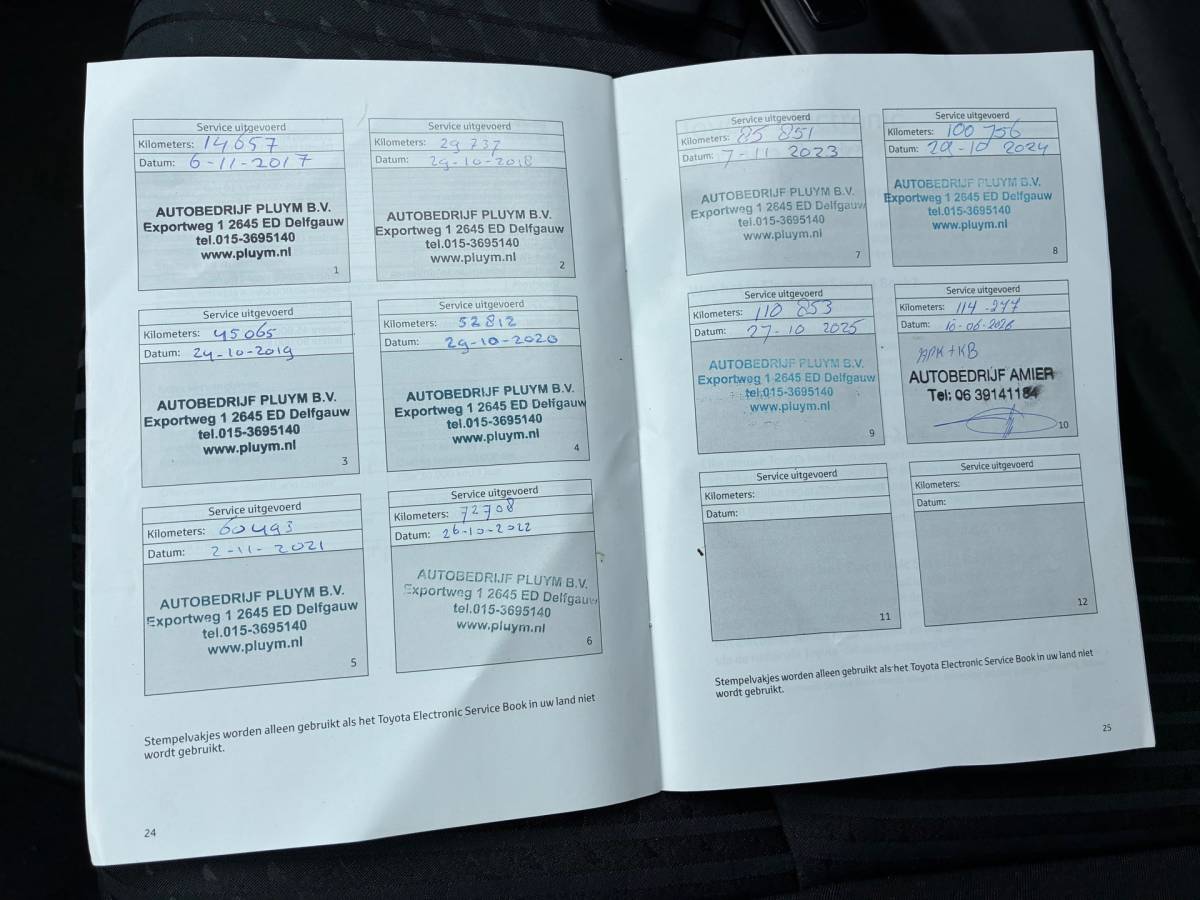 Service uitgevoerd
Kilometers: 14657
Datum: 6-11-2017
AUTOBEDRIJF PLUYM B.V.
Exportweg 1 2645 ED Delfgauw
tel.015-3695140
www.pluym.nl
1
Service uitgevoerd
Kilometers: 29 737
Datum: 29-10-2018
AUTOBEDRIJF PLUYM B.V.
Exportweg 1 2645 ED Delfgauw
tel.015-3695140
www.pluym.nl
2
Service uitgevoerd
Kilometers: 45065
Datum: 24-10-2019
AUTOBEDRIJF PLUYM B.V.
Exportweg 1 2645 ED Delfgauw
tel.015-3695140
www.pluym.nl
3
Service uitgevoerd
Kilometers: 52812
Datum: 29-10-2020
AUTOBEDRIJF PLUYM B.V.
Exportweg 1 2645 ED Delfgauw
tel.015-3695140
www.pluym.nl
4
Service uitgevoerd
Kilometers: 60493
Datum: 2-11-2021
AUTOBEDRIJF PLUYM B.V.
Exportweg 1 2645 ED Delfgauw
tel.015-3695140
www.pluym.nl
5
Service uitgevoerd
Kilometers: 72708
Datum: 26-10-2022
AUTOBEDRIJF PLUYM B.V.
Exportweg 1 2645 ED Delfgauw
tel.015-3695140
www.pluym.nl
6
Stempelvakjes worden alleen gebruikt als het Toyota Electronic Service Book in uw land niet
wordt gebruikt.
24
Service uitgevoerd
Kilometers: 85 851
Datum: 7-11 2023
AUTOBEDRIJF PLUYM B.V.
Exportweg 1 2645 ED Delfgauw
tel.015-3695140
www.pluym.nl
7
Service uitgevoerd
Kilometers: 100 756
Datum: 29-10 2024
AUTOBEDRIJF PLUYM B.V.
Exportweg 1 2645 ED Delfgauw
tel.015-3695140
www.pluym.nl
8
Service uitgevoerd
Kilometers: 110 853
Datum: 27-10 2025
AUTOBEDRIJF PLUYM B.V.
Exportweg 1 2645 ED Delfgauw
tel.015-3695140
www.pluym.nl
9
Service uitgevoerd
Kilometers: 114.277
Datum: 16-06-2026
APK+KB
AUTOBEDRIJF AMIER
Tel: 06 39141184
10
Service uitgevoerd
Kilometers:
Datum:
11
Service uitgevoerd
Kilometers:
Datum:
12
Stempelvakjes worden alleen gebruikt als het Toyota Electronic Service Book in uw land niet
wordt gebruikt.
25